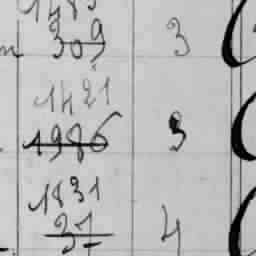 309 3
1421
1986 3
1831
37 4